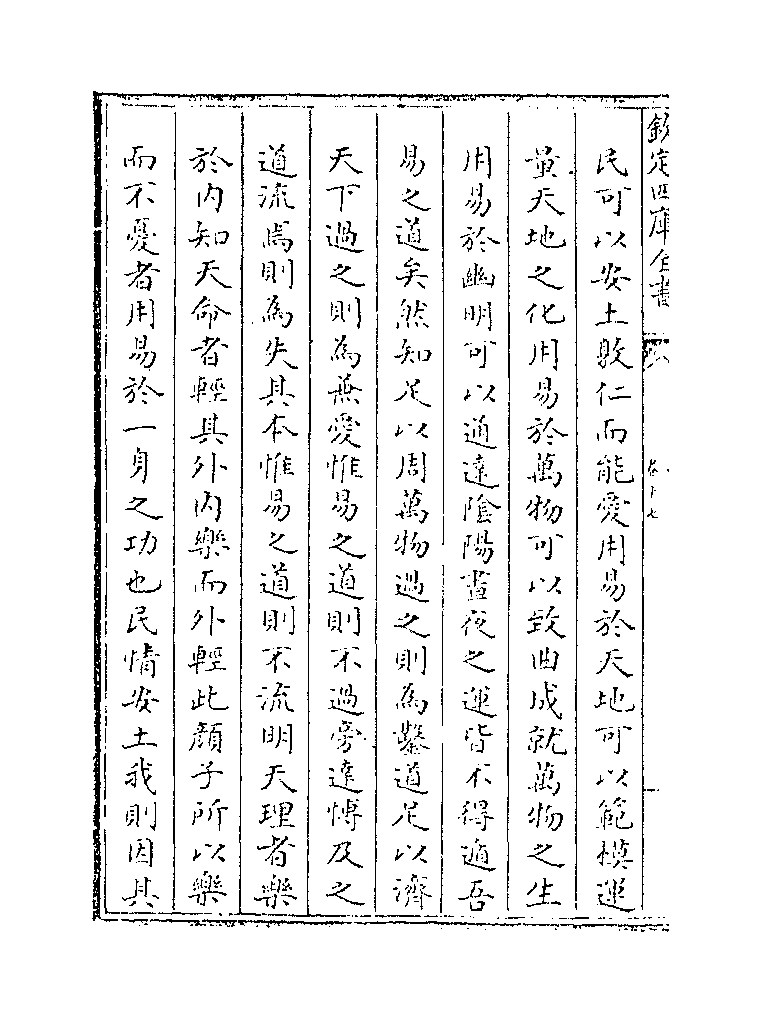 欽定四庫全書
卷十七
民可以安土敦仁而能愛用易於天地可以範模運
量天地之化用易於萬物可以致曲成就萬物之生
用易於幽明可以通達陰陽晝夜之運皆不得遁吾
易之道矣然知足以周萬物過之則為鑿道足以濟
天下過之則為兼愛惟易之道則不過旁達博及之
道流焉則為失其本惟易之道則不流明天理者樂
於内知天命者輕其外内樂而外輕此顔子所以樂
而不憂者用易於一身之功也民情安土我則因其